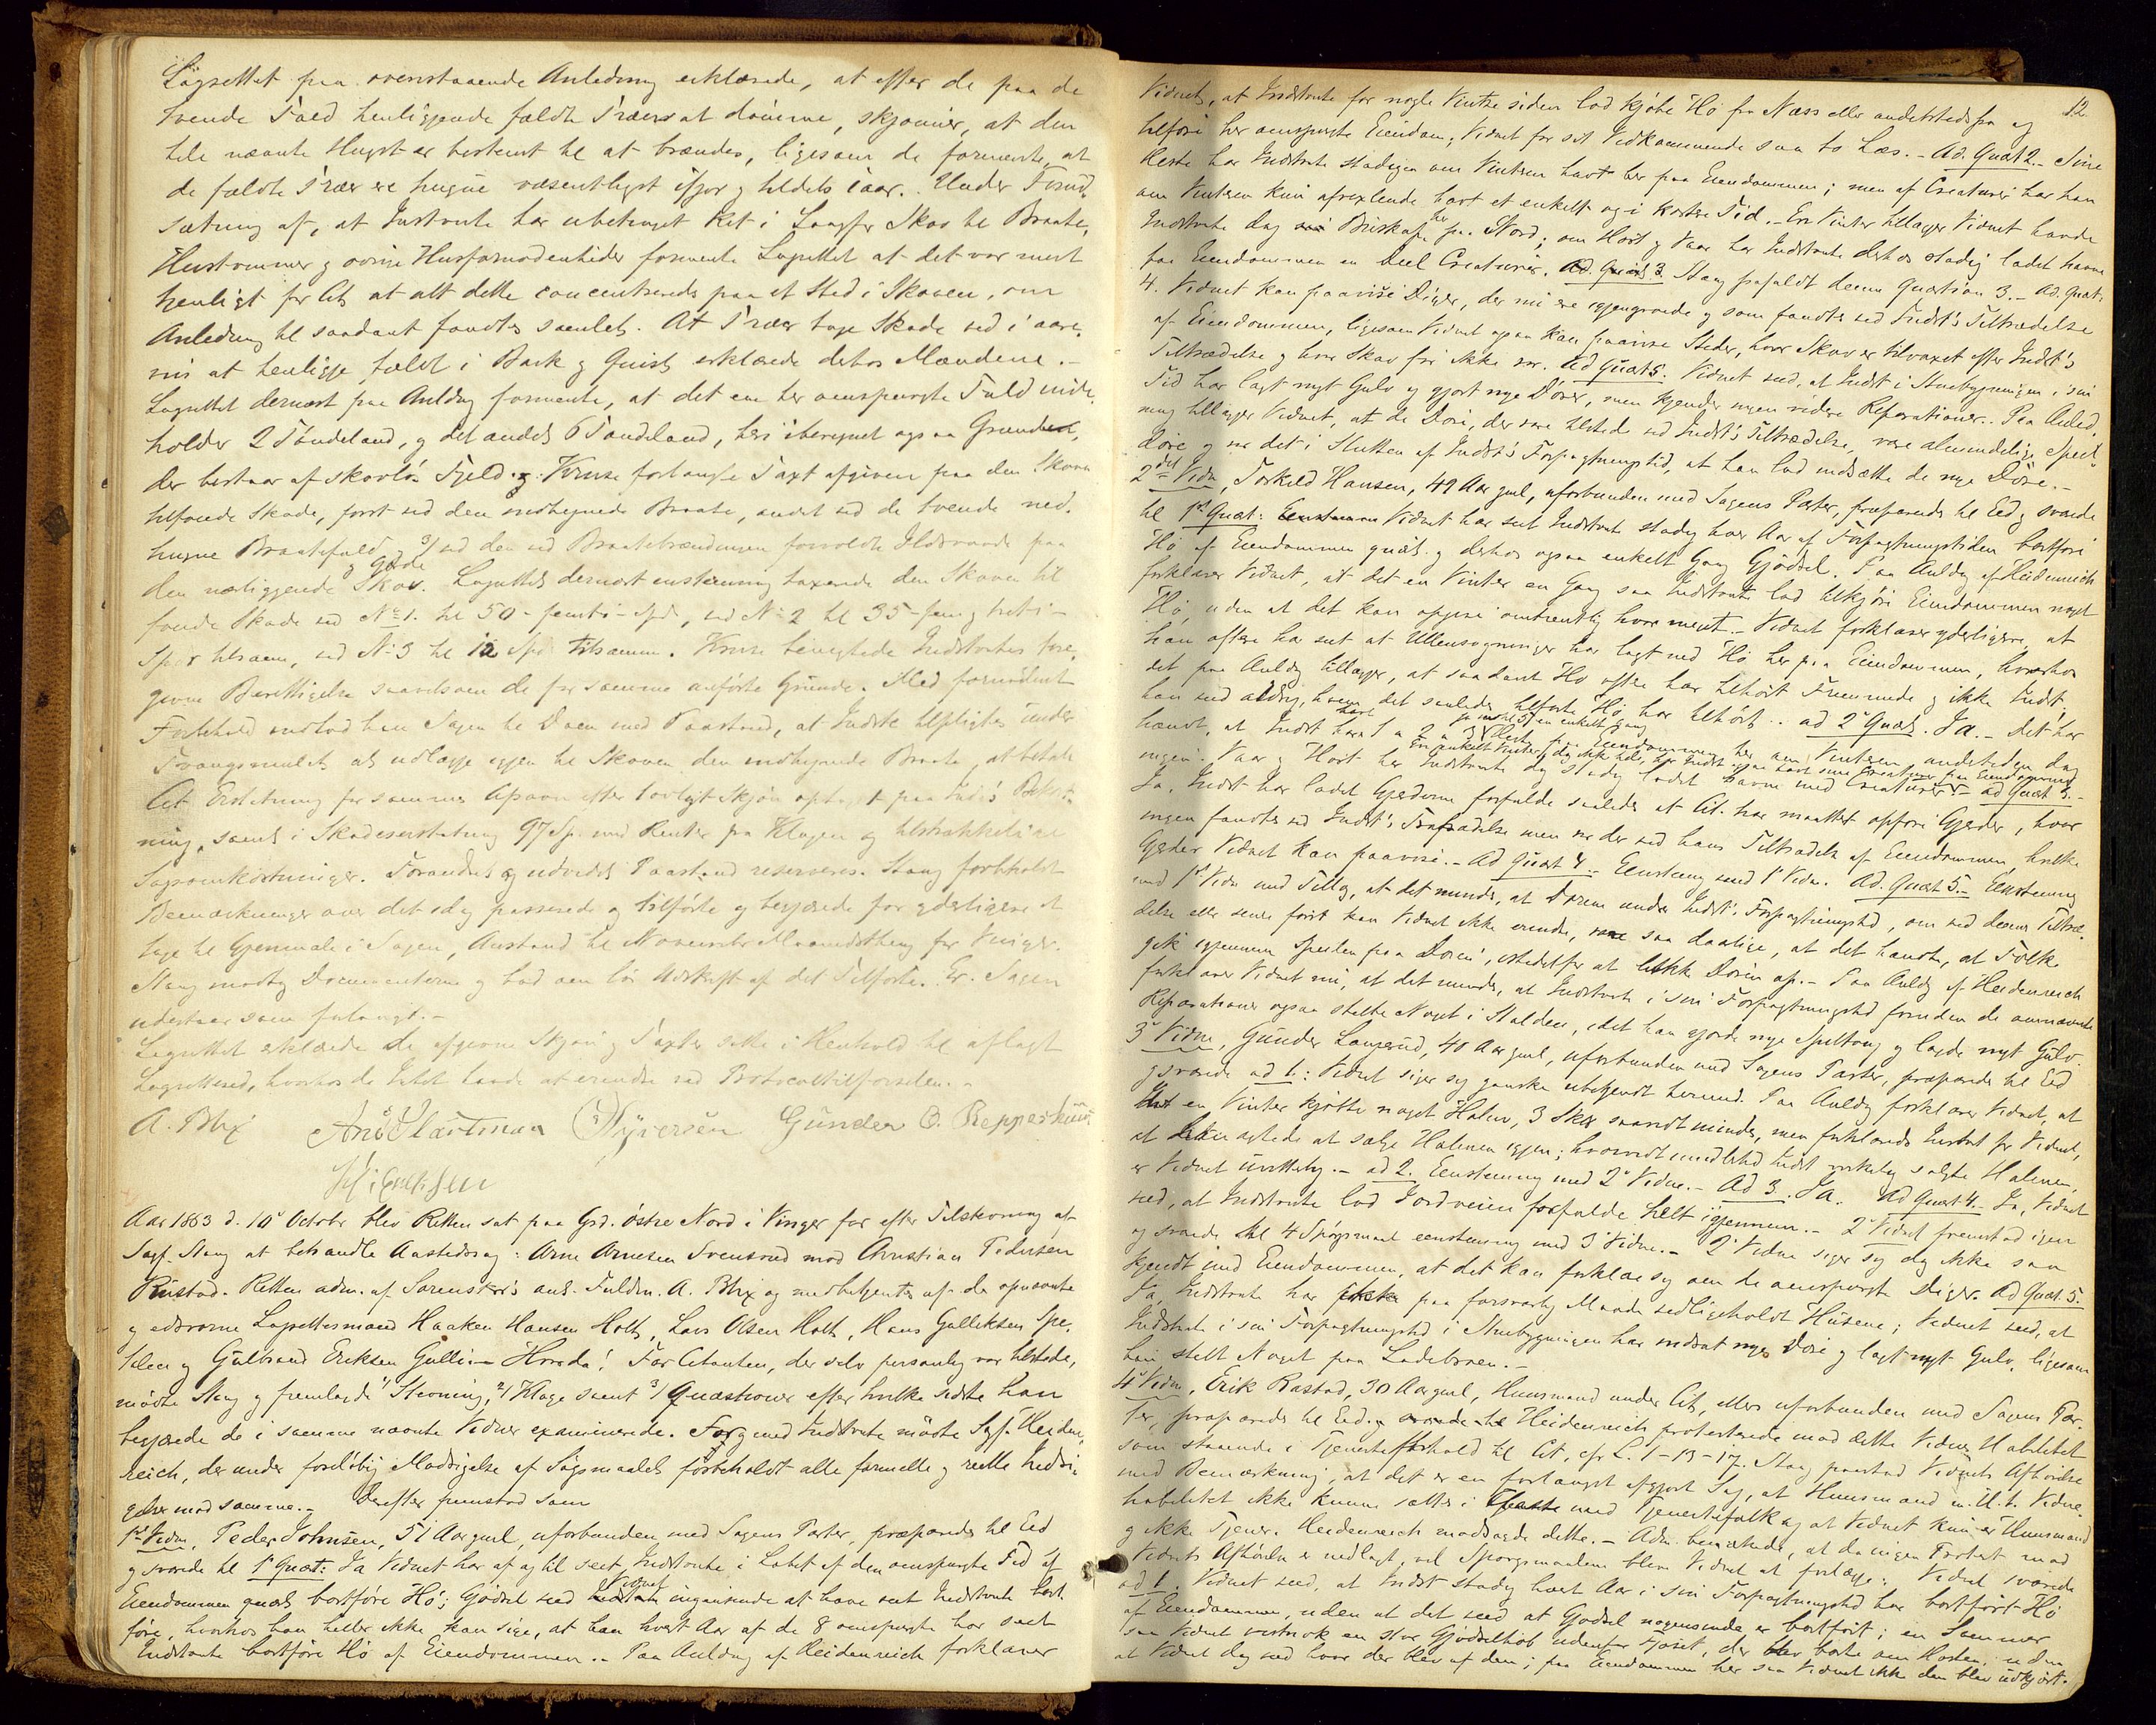 Lagrettet paa ovenstaaende Anledning erklærede, at efter de paa de
tvende Fald henliggende fældte Træer at dømme, skjønner, at den
hele nævnte Hugst er bestemt til at brændes, ligesom de formente, at
de fældte Træer ere hugne væsentligst ifjor g tildels iaar. Under Forud-
sætning af, at Indstvnte har ubetinget Ret i Skov til Braate,
Hustømmer g øvrige Husfornødenheder formente Lagrettet at det var mest
tjenligt for Cit. at alt dette concentreredes paa et Sted i Skoven, om
Anledning til saadant fandtes samlet. At Træer tage Skade ved i aare-
vis at henligge fældt i Bark g Qvist erklærede dethos Mændene.-
Lagrettet dernæst paa Anledng formente, at det ene her omspurgte Fald inde-
holder 2 Tøndeland, g det andet 6 Tøndeland, heri iberegnet ogsaa Grund,
der bestaar af skovløs Fjeld. Kruse forlangte Taxt afgiven paa den Skoven
tilføiede Skade, først ved den indhegnede Braate, andet ved de tvende ned-
hugne Braatefald g 3/ ved den ved Braatebrændingen forvoldte Ildsvaade paa
den næsliggende Skov g Gjærde. Lagrettet dernæst enstemmig taxerede den Skoven til-
føiede Skade ved No 1. til 50 - femti - Spd, ved No 2 til 35 - fem g treti -
Spdr tilsam, ved No 3 til 12 Spd tilsamm. Kruse benegtede Indstvntes fore-
givne Berettigelse saavelsom de for samme anførte Grunde. Med fornødent
Forbehold indlod han Sagen til Dom med Paastand, at Indstvte tilpligtes under
Tvangsmulct at udlægge igjen til Skoven den indhegnede Braate, at betale
Cit. Erstatning for sammes Afsavn efter lovligt Skjøn optaget paa Inds's Bekost-
ning, samt i Skadeserstatning 97 Sp. med Renter fra Klagen og tilstrækkelige
Sagsomkostninger. Forandret og udvidet Paastand reserveres. Stang forbeholdt
Bemærkninger over det idag passerede og tilførte og begjærede for yderligere at
tage til Gjenmæle i Sagen, Anstand til November Maanedsthing for Vinger.
Stang modtog Documenterne g bad om løs Udskrift af det Tilførte. Er. Sagen
udestaar som forlangt.-
Lagrettet erklærede de afgivne Skjøn g Taxter skete i Henhold til aflagt
Lagretteed, hvorhos de Intet havde at erindre ved Protocoltilførselen.-
A. Blix Gunder O. Repperskuus
Aar 1863 d. 10de Octobr blev Retten sat paa Grd. østre Nord i Vinger for efter Tilskrivning af
Sagf. Stang at behandle Aastedssag: Arne Arnesen Svensrud mod Christian Pedersen
Rustad. Retten adm. af Sorenskr's aut. Fuldm. A. Blix og medbetjentes af de opnævnte
g edsvorne Lagrettesmænd Haaken Hansen Holt, Lars Olsen Holt, Hans Gulliksen Spe-
telen g Gulbrand Eriksen Gulli- Hovda! For Citanten, der selv personlig var tilstede,
mødte Stang g fremlagde 1/ Stevning, 2/ Klage samt 3/ Quæstioner efter hvilke sidste han
begjærede de i samme nævnte Vidner examinerede. For g med Indstvnte mødte Sagf. Heiden-
reich, der under foreløbig Modsigelse af Søgsmaalet forbeholdt alle formelle g reelle Indsi-
gelser mod samme.- Derefter fremstod som
1ste Vidne, Peder Johnsen, 51 Aar gml, uforbunden med Sagens Parter, præpareredes til Eed
g svarede til 1st Quæst: Ja Vidnet har af og til seet Indstvnte i Løbet af den omspurgte Tid af
Eiendommen quæst. bortføre Hø; Gjødsel veed Vidnet ingensinde at have seet Indstvnte bort-
føre, hvorhos han heller ikke kan sige, at han hvert Aar af de 8 omspurgte har seet
Indstvnte bortføre Hø af Eiendommen.- Paa Anledng af Heidenreich forklarer
12.
Vidnet, at Indstvnte for nogle Vintre siden lod kjøbe Hø fra Næss eller andetsteds fra og
tilføre her omspurgte Eiendom; Vidnet for sit Vedkommende saa to Læs.- Ad. Quæst 2.- Sine
Heste har Indstvnte stadigen om Vinteren havt her paa Eiendommen; men af Creaturer har han
om Vinteren kun afvexlende havt et enkelt og i kortere Tid.- En Vinter tillægger Vidnet havde
Indstvnte dog Buskap her paa Nord; om Høst g Vaar har Indstvnte dethos stadig ladet havne
paa Eiendommen en Deel Creaturer. Ad. Quæst 3. Stang frafaldt denne Quæstion 3.- Ad. Quæst.
4. Vidnet kan paavise Diger, der nu ere igjengroede g som fandtes ved Indst's Tiltrædelse
af Eiendommen, ligesom Vidnet ogsaa kan paavise Steder, hvor Skov er tilvoxet efter Indst's
Tiltrædelse g hvor Skov før ikke var. Ad Quæst 5: Vidnet veed, at Indst i Stuebygningen i sin
Tid har lagt nyt Gulv og gjort nye Døre, men kjender ingen videre Reparationer.- Paa Anled-
ning tillægger Vidnet, at de Døre, der vare tilstede ved Indst's Tiltrædelse, vare almindelige Speil-
døre g var det i Slutten af Indst's Forpagtningstid, at han lod indsætte de nye Døre.-
2det Vidne, Torkild Hansen, 49 Aar gml, uforbunden med Sagens Parter, præpareredes til Eed g svarede
til 1st Quæst: Vidnet har seet Indstvnte stadig hver Aar af Forpagtningstiden bortføre
Hø af Eiendommen quæst. g dethos ogsaa enkelt Gang Gjødsel. Paa Anledng af Heidenreich
forklarer Vidnet, at det en Vinter en Gang saa Indstvnte lod tilkjøre Eiendommen noget
Hø, uden at det kan opgive omtrentlig hvor meget.- Vidnet forklarer yderligere, at
han oftere har seet at Ullensogninger har lagt ned Hø her paa Eiendommen, hvorhos
det paa Anledng tillægger, at saadant Hø oftere har tilhørt Fremmede g ikke Indst;
han veed aldrig, hvem det saaledes tilførte Hø har tilhørt.- ad 2de Quæst. Ja.- Det har
hændt, at Indst havt 1 a 2 a 3 Heste ja indtil 5 en enkelt Gang paa Eiendommen her om Vinteren, andetiden dog
ingen. En enkelt Vinter, dog ikke hele, har Indst ogsaa havt sine Creaturer paa Eiendommen Vaar g Høst har Indstvnte dog stadig ladet havne med Creaturer.- ad Quæst 3.-
Ja, Indst har ladet Gjerderne forfalde saaledes at Cit. har maattet opføre Gjerder, hvor
ingen fandtes ved Indst's Fratrædelse men var der ved hans Tiltrædelse af Eiendommen, hvilke
Gjerder Vidnet kan paavise.- Ad Quæst 4.- Eenstemg med 1ste Vidne. Ad. Quæst 5.- Eenstemmig
med 1ste Vidne med Tillæg, at det mindes, at Dørene under Indst's Forpagtningstid, om ved dennes Tiltræ-
delse eller senere først kan Vidnet ikke erindre, vare saa daarlige, at det hændte, at Folk
gik igjennem Speilen paa Døren, istedetfor at lukke Døren op.- Paa Anledg af Heidenreich
forklarer Vidnet nu, at det mindes, at Indstvnte i sin Forpagtningstid foruden de omnævnte
Reparationer ogsaa stelte Noget i Stalden, idet han gjorde nye Spiltoug g lagde nyt Gulv.
3de Vidne, Gunder Langerud, 40 Aar gml, uforbunden med Sagens Parter, præpareredes til Eed
g svarede ad 1.: Vidnet siger sig ganske ubekjendt herved. Paa Anledg forklarer Vidnet, at
Indst en Vinter kjøbte noget Halm, 3 Skk saavidt mindes, men forklarede Indst for Vidnet,
at han agtede at sælge Halmen igjen; hvorvidt imidlertid Indst virkelig solgte Halmen,
er Vidnet uvitterlig.- ad 2. Eenstemmig med 2de Vidne.- Ad 3. Ja. Ad Quæst 4.- Ja, Vidnet
veed, at Indstvnte lod Jordveien forfalde helt igjennem.- 2de Vidnet fremstod igjen
og svarede til 4 Spørgsmaal eenstemmig med 3de Vidne.- 2de Vidne siger sig dog ikke saa
kjendt med Eiendommen, at det kan forklare sig om de omspurgte Diger. Ad Quæst 5.
Ja, Indstvnte har ikke paa forsvarlig Maade vedligeholdt Husene; Vidnet veed, at
Indstvnte i sin Forpagtningstid i Stuebygningen har indsat nye Døre g lagt nyt Gulv, ligesom
han stelt Noget paa Ladebroen.-
4de Vidne, Erik Rastad, 30 Aar gml, Huusmand under Cit, ellers uforbunden med Sagens Par-
ter, præpareredes til Eed. Heidenreich protesterede mod dette Vidnes Habilitet
som staaende i Tjenesteforhold til Cit, cfr L. 1-13-17. Stang paastod Vidnets Afhørelse
med Bemærkning, at det er en forlængst afgjort Sag, at Huusmænd m. H. t. Vidne-
habilitet ikke kunne sættes i Classe med Tjenestefolk og at Vidnet kun er Huusmand
g ikke Tjener. Heidenreich modsagde dette.- Adm. bemærkede, at da ingen Protest mod
Vidnets Afhørelse er nedlagt, vil Spørgsmaalene blive Vidnet at forelægge. Vidnet svarede
ad 1. Vidnet veed, at Indst stadig hvert Aar i sin Forpagtningstid har bortført Hø
af Eiendommen, uden at det veed at Gjødsel nogensinde er bortført; en Sommer
saa Vidnet vistnok en stor Gjødselhob udenfor Fjøset, der blev borte om Høsten, uden
at Vidnet dog veed hvor der blev af den; paa Eiendommen her saa Vidnet ikke den blev udkjørt.